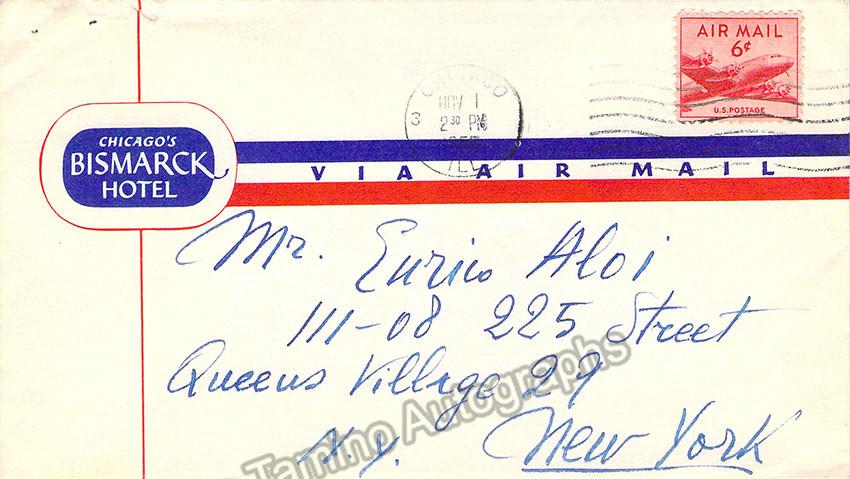 AIR MAIL
6¢
U.S. POSTAGE
CHICAGO
NOV 1
3 2 30 PM
ILL
CHICAGO'S
BISMARCK
HOTEL
VIA AIR MAIL
Mr. Enrico Aloi
111-08 225 Street
Queens Village 29
N.Y. New York
Tamino Autographs